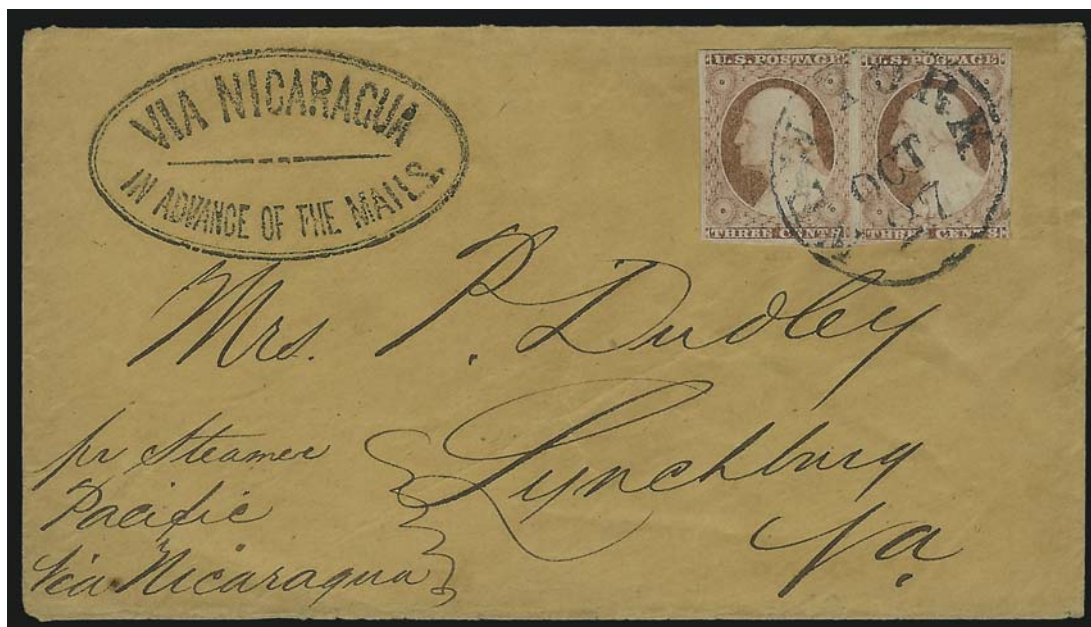 VIA NICARAGUA
IN ADVANCE OF THE MAILS.
U.S. POSTAGE
THREE CENTS
U.S. POSTAGE
THREE CENTS
NEW YORK
OCT
27
Mrs. P. Dudley
Lynchburg
Va
pr Steamer
Pacific
via Nicaragua